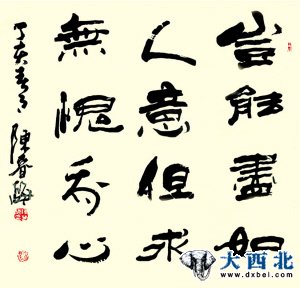 豈能盡如
人意但求
無愧我心
丁亥春月
陳春
大西北
www.dxbei.com